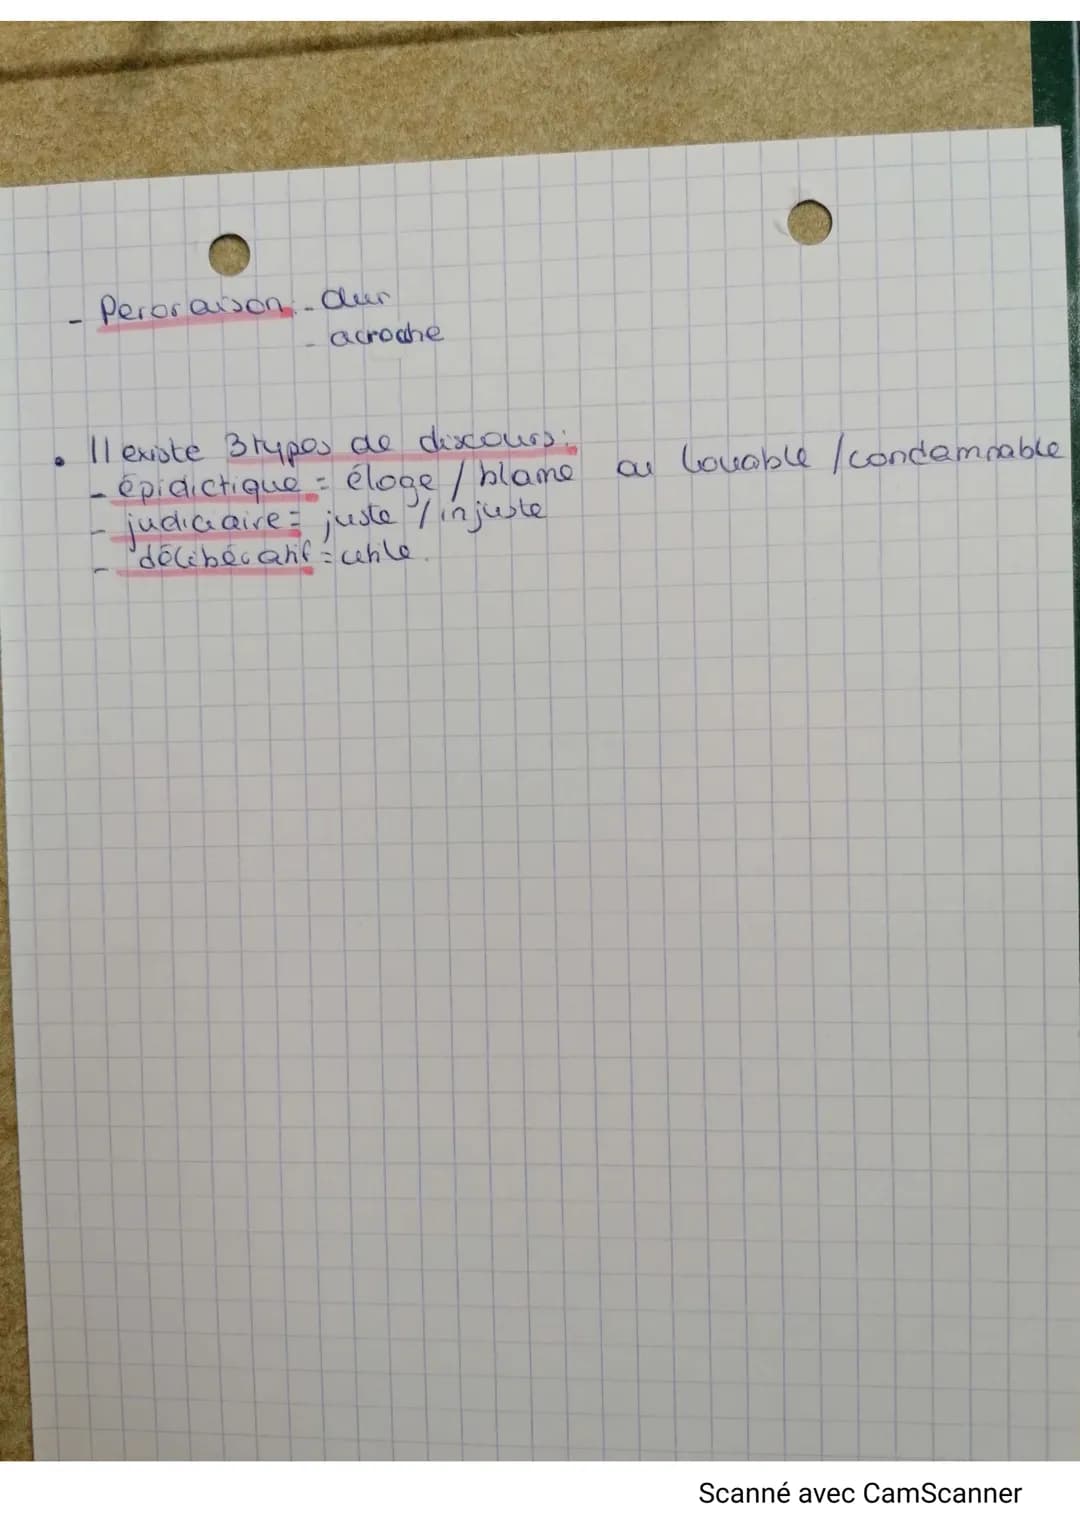 - Peroraison: - dur
- acroche
• Il existe 3 types de discours:
- épidictique = éloge / blame ou louable / condamnable
- judiciaire = juste / injuste
- délibératif = utile.
Scanné avec CamScanner